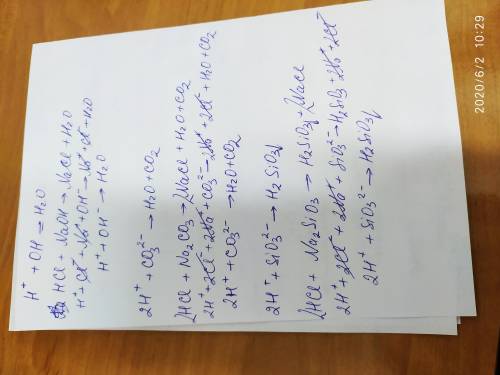 H⁺ + OH⁻ = H₂O
HCl + NaOH → NaCl + H₂O
H⁺ + Cl⁻ + Na⁺ + OH⁻ → Na⁺ + Cl⁻ + H₂O
H⁺ + OH⁻ → H₂O
2H⁺ + CO₃²⁻ → H₂O + CO₂
2HCl + Na₂CO₃ → 2NaCl + H₂O + CO₂
2H⁺ + 2Cl⁻ + 2Na⁺ + CO₃²⁻ → 2Na⁺ + 2Cl⁻ + H₂O + CO₂
2H⁺ + CO₃²⁻ → H₂O + CO₂
2H⁺ + SiO₃²⁻ → H₂SiO₃↓
2HCl + Na₂SiO₃ → H₂SiO₃↓ + 2NaCl
2H⁺ + 2Cl⁻ + 2Na⁺ + SiO₃²⁻ → H₂SiO₃ + 2Na⁺ + 2Cl⁻
2H⁺ + SiO₃²⁻ → H₂SiO₃↓
2020/6/2 10:29